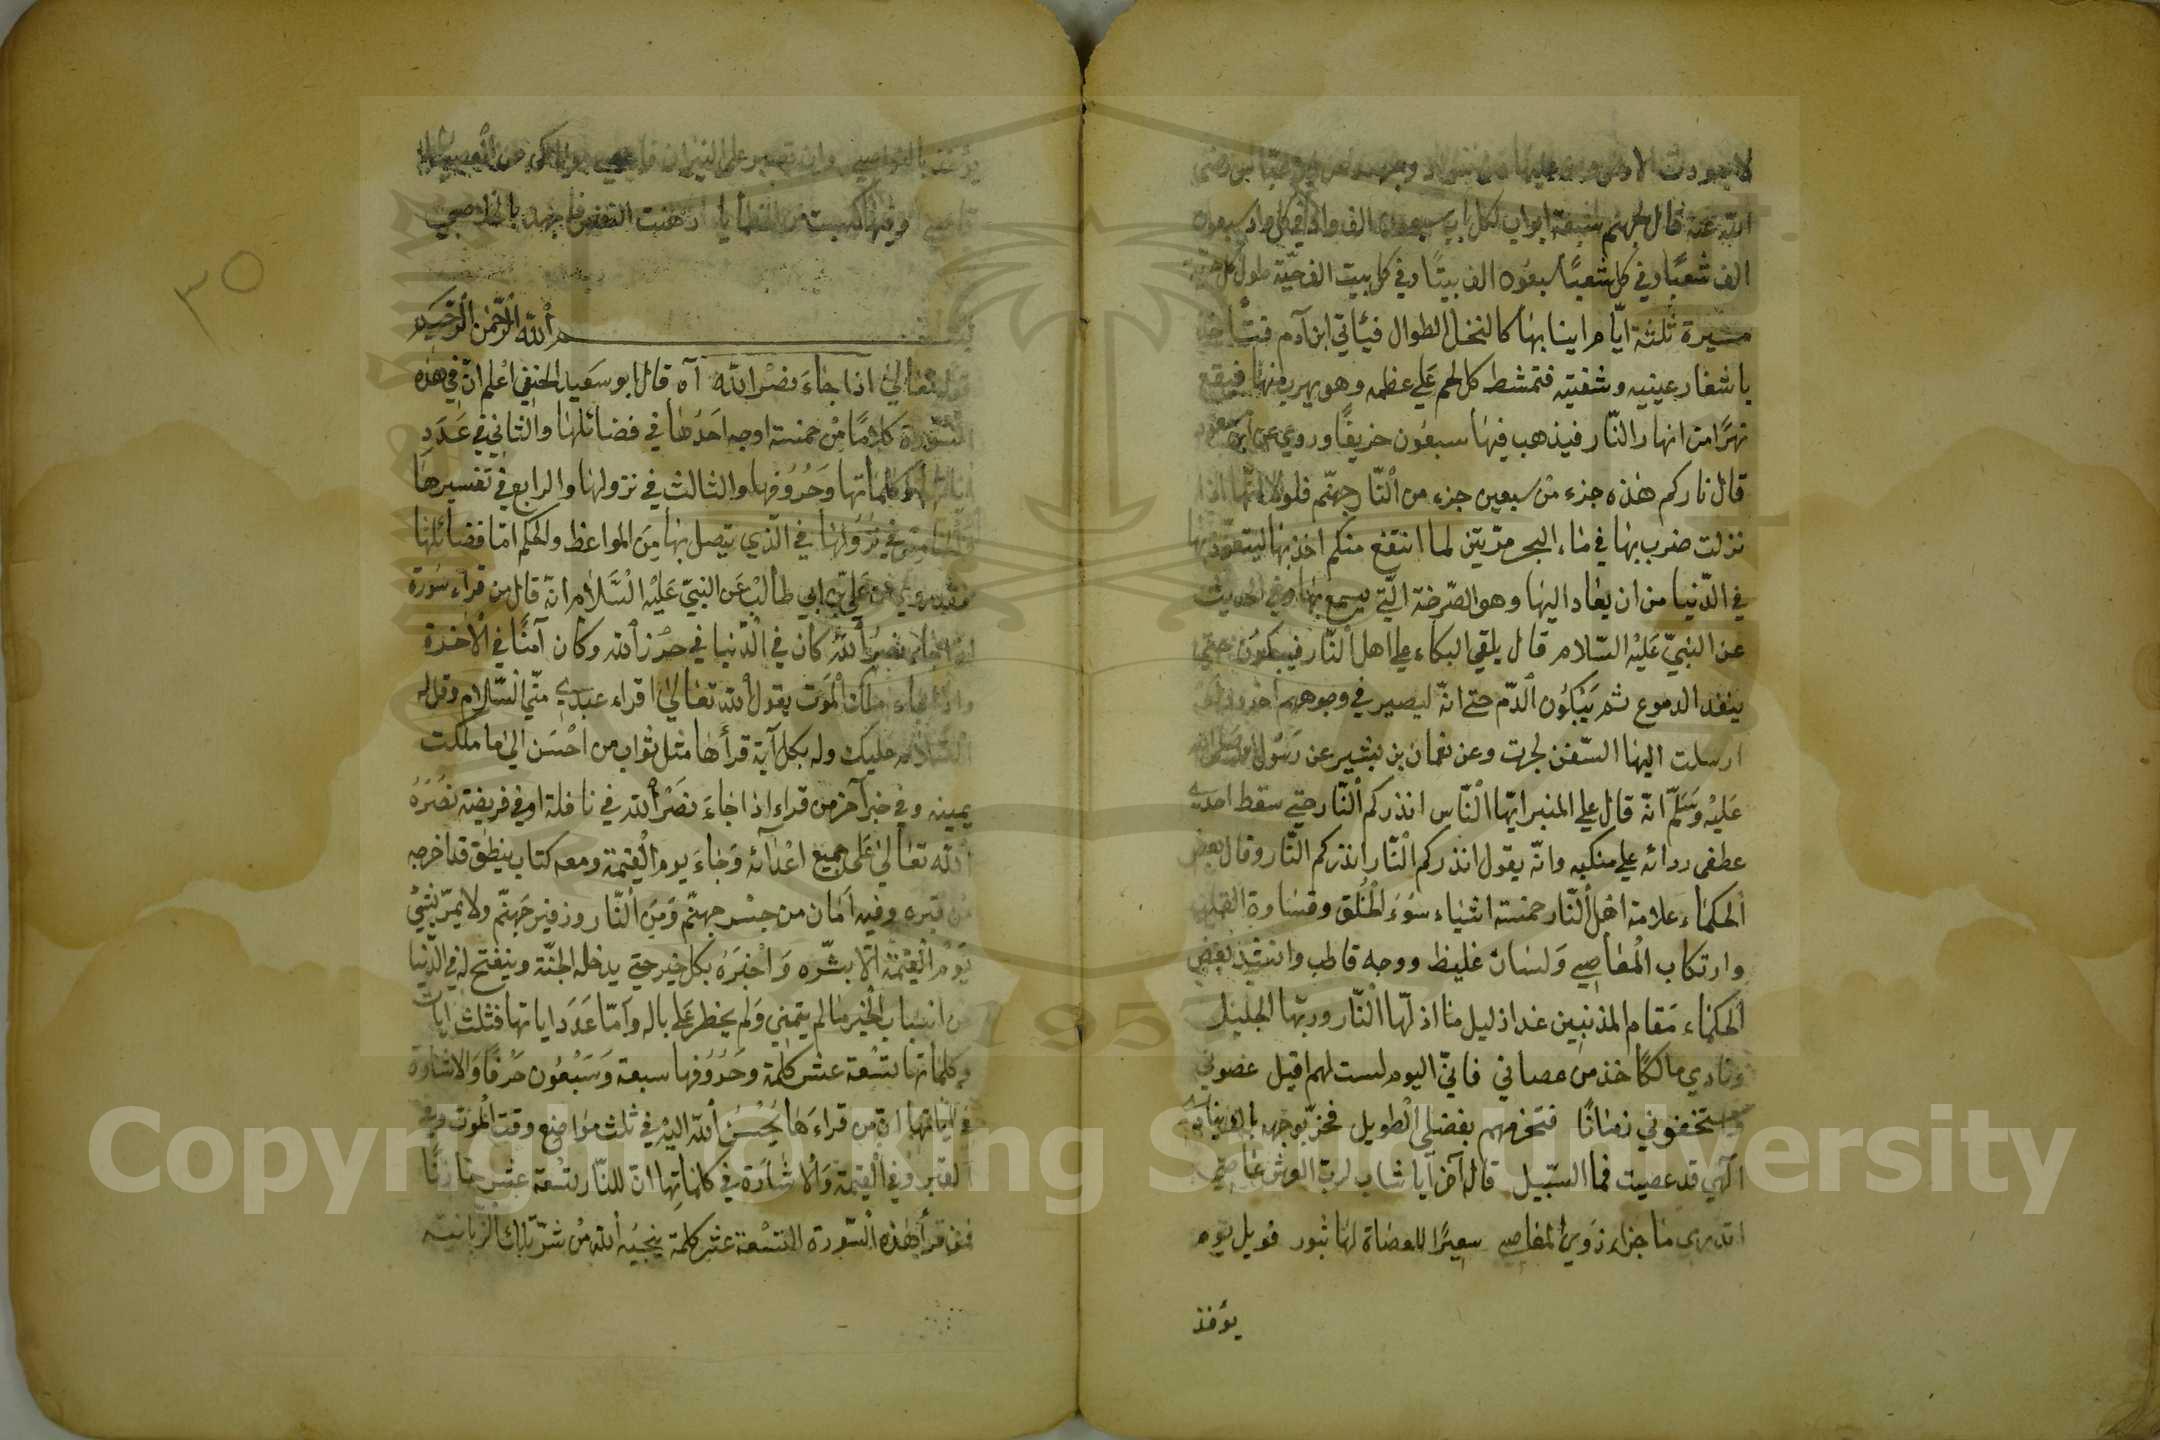 الله عنه قال لجهنم سبعة ابواب لكل باب سبعون الف واد في كل واد سبعون
الف شعبًا وفي كل شعبًا سبعون الف بيتًا وفي كل بيت الف حيّة طول كل حيّة
مسيرة ثلثة ايّام اينابها كالنخل الطوال فيئاتي ابن آدم
باشفار عينيه وشفتيه فتمشط كل لحم علي عظمه وهو يهرب منها فيقع
نهرًا من انهار النّار فيذهب فيها سبعون خريفًا وروي عن ابن
قال ناركم هذه جزء من سبعين جزء من النّار جهنّم فلولا انّها اذا
نزلت ضرب بها في ماء البحر مرّتين لما انتفع منكم احذ بها ليتعوّذ بها
في الدّنيا من ان يعاد اليها وهو الصّرخة الّتي يسمع بها وفي احديث
عن النبيّ عَلَيْه السّلام قال يلقي البكاء علي اهل النّار فيبكون حتي
ينفد الدموع ثم يَبْكوُن الدّم حتي انّه ليصير في وجوههم اخدود
ارسلت اليها السّفن لجرت وعن نعمان بن بشير عن رسول الله صلى الله
عَلَيْه وَسَلّم انّه قال علي المنبر ايّها النّاس انذركم النّار حتي سقط احدي
عطفى ردائه علي منكبيه وانّه يقول انذركم النّار انذركم النّار وقال بعض
الحكماء علامة اهل النّار خمسة اشياء سُوءَ الخلق وقساوة القلب
وارتكاب المعاصي وَلسان غليظ ووجه قاطب وانشد بعض
الحكماء مَقام المذنبين غدا ذليل منا اذلّها النّار وربّها الجليل
ونادي مالكًا خذ من عصاني فانّي اليوم لست لهم اقيل عضوني
الٓهي قد عصيت فما السّبيل قال آخر ايا شاب لربّ العرش عاصي
اتدري ما جزاء ذوي المعاصي سعيرًا للعصاة لها ثبور فويل يوم
يؤخذ
٣٥
يؤخذ بالنواصي وان تصبر علي النيران
وفيما كسبت من الخطأيا رهنت النفس فاجهد بالخلاص
بسم الله الرّحمن الرّحيم
قوله تعالي اذا جاءَ نصْر الله آه قال ابو سَعيد الحنفي اعْلم انّ في هٰذه
السّورة كلامًا منْ خمسة اوجه احَدُها في فضائلها والثاني في عَدَد
اياتها وكلماتها وَحُرُوفها والثالث في نزولها والرابع في تفسيرها
والخامس في نزولها في الّذي يتصل بها مِنَ المواعظ والحكم امّا فضائلها
فقد روي عن عَليّ بن ابي طالبْ عَن النبيّ عَلَيْه السّلام انّه قال من قراء سُورة
اذا جاء نصرُ الله كان في الدّنيا في حرْز الله وكان آمنًا في الاخرة
واذا جاء ملك المَوت يقول الله تعالي اقراء عبدي منّي السّلام وقل له
السّلام عليك وله بكل آية قرأها مثل ثواب من احْسَن الي ما ملكت
يمينه وفي خبر آخر من قراء اذا جاءَ نصْر الله في نافلة او في فريضة نصَرَهُ
الله تعالي عَلى جميع اعْدآئه وَجاءَ يوم القيٰمة ومعه كتاب ينطق قد اخرجه
من قبره وفيه اَمَان من جسر جهنّم وَمِنَ النّار وزفير جَهنّم ولا يمرّ بشئ
يَوْم القيٰمة الّا بشّره وَاخبَرَهُ بكل خير حتي يدخله الجنّة وينفتح له في الدّنيا
من اسباب الخير ما لم يتمنّي وَلم يخطر عَلي باله وَامّا عَدَد اياتها فثلث ايات
وكلماتها تسْعة عشر كلمة وَحُرُوفها سبعة وَسَبْعُون حَرْفًا وَالاشارة
في اياتها انّ من قراءَها يُحْسِنُ الله اليْه في ثلث مواضع وقت المَوت وفي
القبر وفي القيٰمة وَالاشارة في كلماتِها انّ للنّار تسْعة عشر خازنًا
فمن قرأ هٰذه السّورة التسْعة عشر كلمة ينجيه الله منْ شرّ تلك الزبانية
Copyright © King Saud University
1957